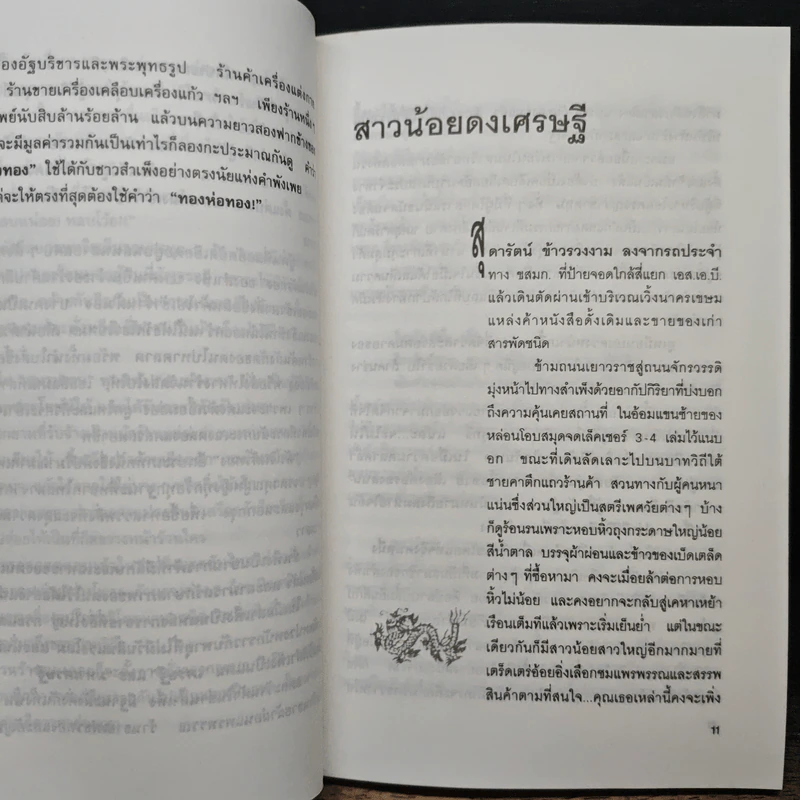 องอัฐบริขารและพระพุทธรูป ร้านค้าเครื่องแต่งกาย
ร้านขายเครื่องเคลือบเครื่องแก้ว ฯลฯ เพียงร้านหนึ่งๆ
พย์นับสิบล้านร้อยล้าน แล้วบนความยาวสองฟากข้าง
จะมีมูลค่ารวมกันเป็นเท่าไรก็ลองกะประมาณกันดู คำว่า
ทอง" ใช้ได้กับชาวสำเพ็งอย่างตรงนัยแห่งคำพังเพย
จะให้ตรงที่สุดต้องใช้คำว่า "ทองห่อทอง!"
สาวน้อยดงเศรษฐี
สุดารัตน์ ข้าวรวงงาม ลงจากรถประจำ
ทาง ขสมก. ที่ป้ายจอดใกล้สี่แยก เอส.เอ.บี.
แล้วเดินตัดผ่านเข้าบริเวณเวิ้งนาครเขษม
แหล่งค้าหนังสือดั้งเดิมและขายของเก่า
สารพัดชนิด
ข้ามถนนเยาวราชสู่ถนนจักรวรรดิ
มุ่งหน้าไปทางสำเพ็งด้วยอากัปกิริยาที่บ่งบอก
ถึงความคุ้นเคยสถานที่ ในอ้อมแขนซ้ายของ
หล่อนโอบสมุดจดเล็คเชอร์ 3-4 เล่มไว้แนบ
อก ขณะที่เดินลัดเลาะไปบนบาทวิถีใต้
ชายคาตึกแถวร้านค้า สวนทางกับผู้คนหนา
แน่นซึ่งส่วนใหญ่เป็นสตรีเพศวัยต่างๆ บ้าง
ก็ดูร้อนรนเพราะหอบหิ้วถุงกระดาษใหญ่น้อย
สีน้ำตาล บรรจุผ้าผ่อนและข้าวของเบ็ดเตล็ด
ต่างๆ ที่ซื้อหามา คงจะเมื่อยล้าต่อการหอบ
หิ้วไม่น้อย และคงอยากจะกลับสู่เคหาเหย้า
เรือนเต็มทีแล้วเพราะเริ่มเย็นย่ำ แต่ในขณะ
เดียวกันก็มีสาวน้อยสาวใหญ่อีกมากมายที่
เตร็ดเตร่อ้อยอิ่งเลือกชมแพรพรรณและสรรพ
สินค้าตามที่สนใจ...คุณเธอเหล่านี้คงจะเพิ่ง
11